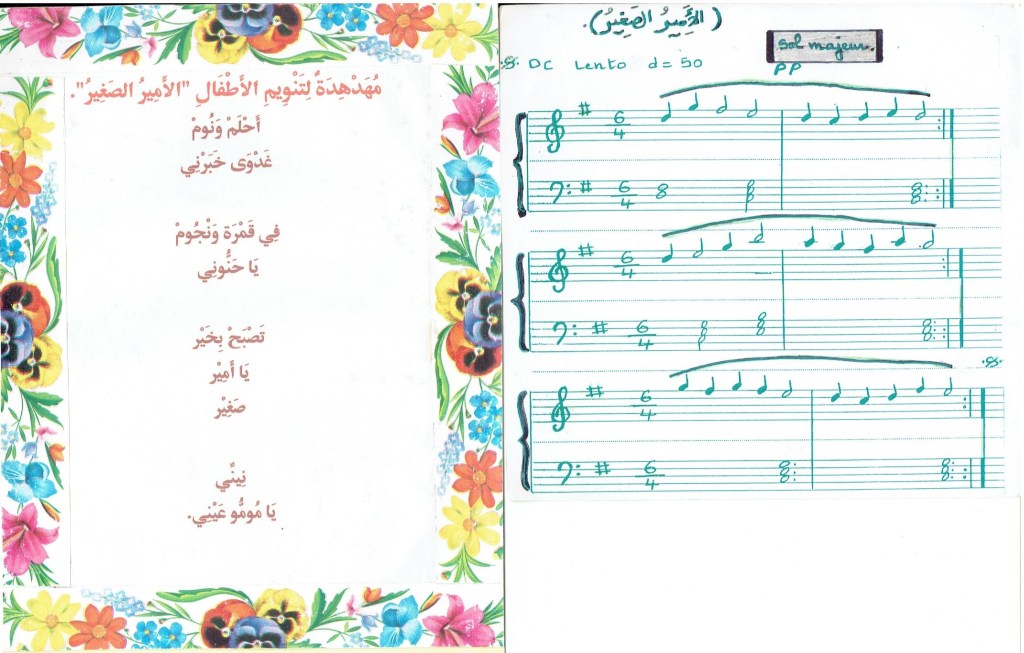 مُهَدْهِدَةٌ لِتَنْوِيمِ الأَطْفَالِ "الأَمِيرُ الصَغِيرُ".
أَحْلَمْ وَنُومْ
غَدْوَى خَبَرْنِي
فِي قَمْرَة وَنْجُومْ
يَا حَنُّونِي
تَصْبَحْ بِخَيْر
يَا أَمِيْر
صَغِيْر
نِينِّي
يَا مُومُّو عَيْنِي.
(الأَمِيرُ الصَغِيرُ).
sol majeur.
DC Lento d = 50
PP
6
4
6
4
6
4
6
4
6
4
6
4